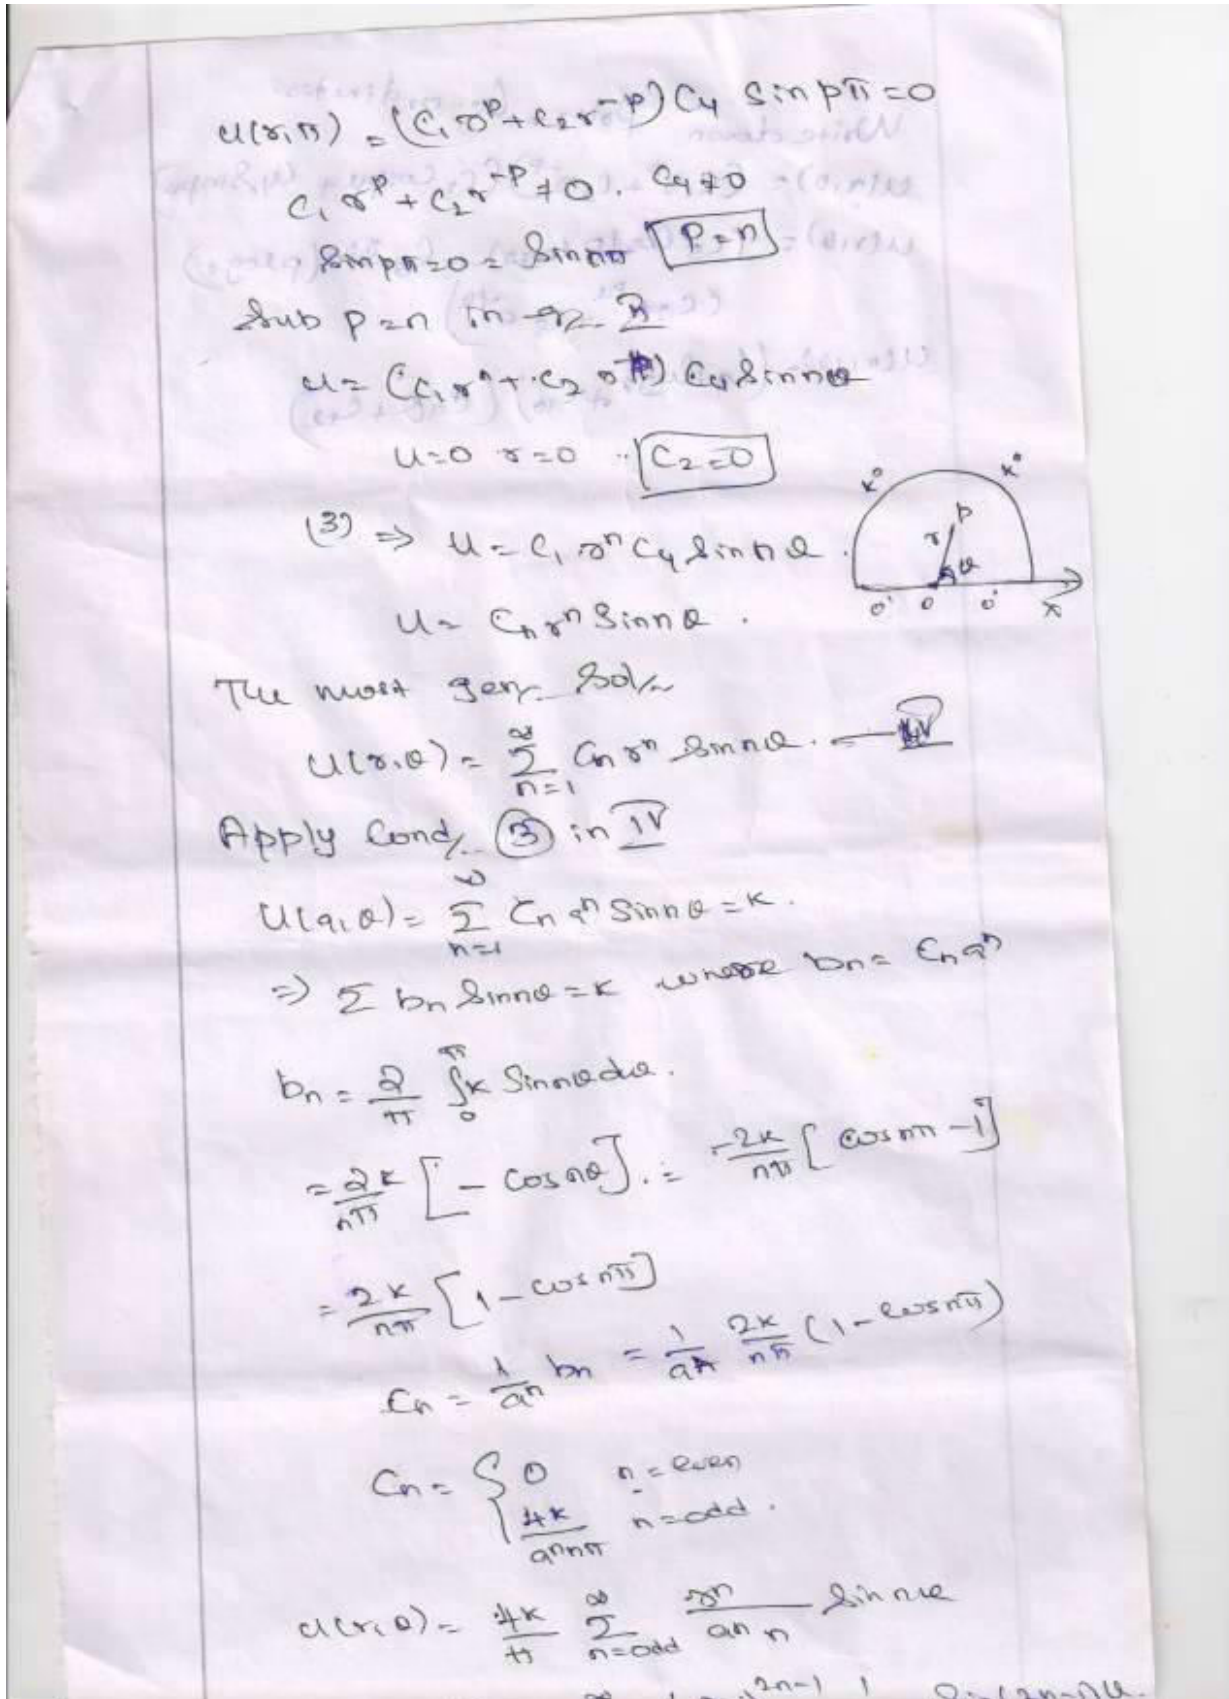 u(r,π) = (C₁ r^p + C₂ r^-p) C₄ sin pπ = 0
C₁ r^p + C₂ r^-p ≠ 0. C₄ ≠ 0
Sin pπ = 0 = Sin nπ P = n
Sub p = n in
u = (C₁ r^n + C₂ r^-n) C₄ Sin nθ
u = 0 r = 0 ∴ C₂ = 0
(3) ⇒ u = C₁ r^n C₄ Sin nθ.
K° K°
P
r
θ
0° 0 0° X
u = Cn r^n Sin nθ.
The most gen. Sol.
U(r,θ) = ∞ Σ n=1 Cn r^n Sin nθ. — IV
Apply Cond. ③ in IV
U(a,θ) = ∞ Σ n=1 Cn a^n Sin nθ = K.
⇒ Σ bn Sin nθ = K where bn = Cn a^n
bn = 2/π ∫₀^π K Sin nθ dθ.
= 2K/nπ [ - Cos nθ ]. = -2K/nπ [ Cos nπ - 1 ]
= 2K/nπ [ 1 - Cos nπ ]
Cn = 1/a^n bn = 1/a^n 2K/nπ (1 - Cos nπ)
Cn = { 0 n = even
4K/a^n nπ n = odd.
U(r,θ) = 4K/π ∞ Σ n=odd r^n/a^n n Sin nθ
∞ 2n-1 1 Sin(2n-1)θ.